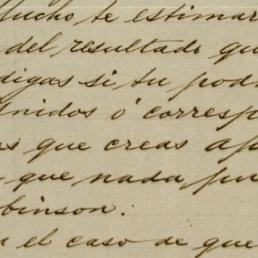 Mucho te estimar
del resultado qu
digas si tu pod
Unidos ó corresp
as que creas ap
que nada pu
binson.
n el caso de que